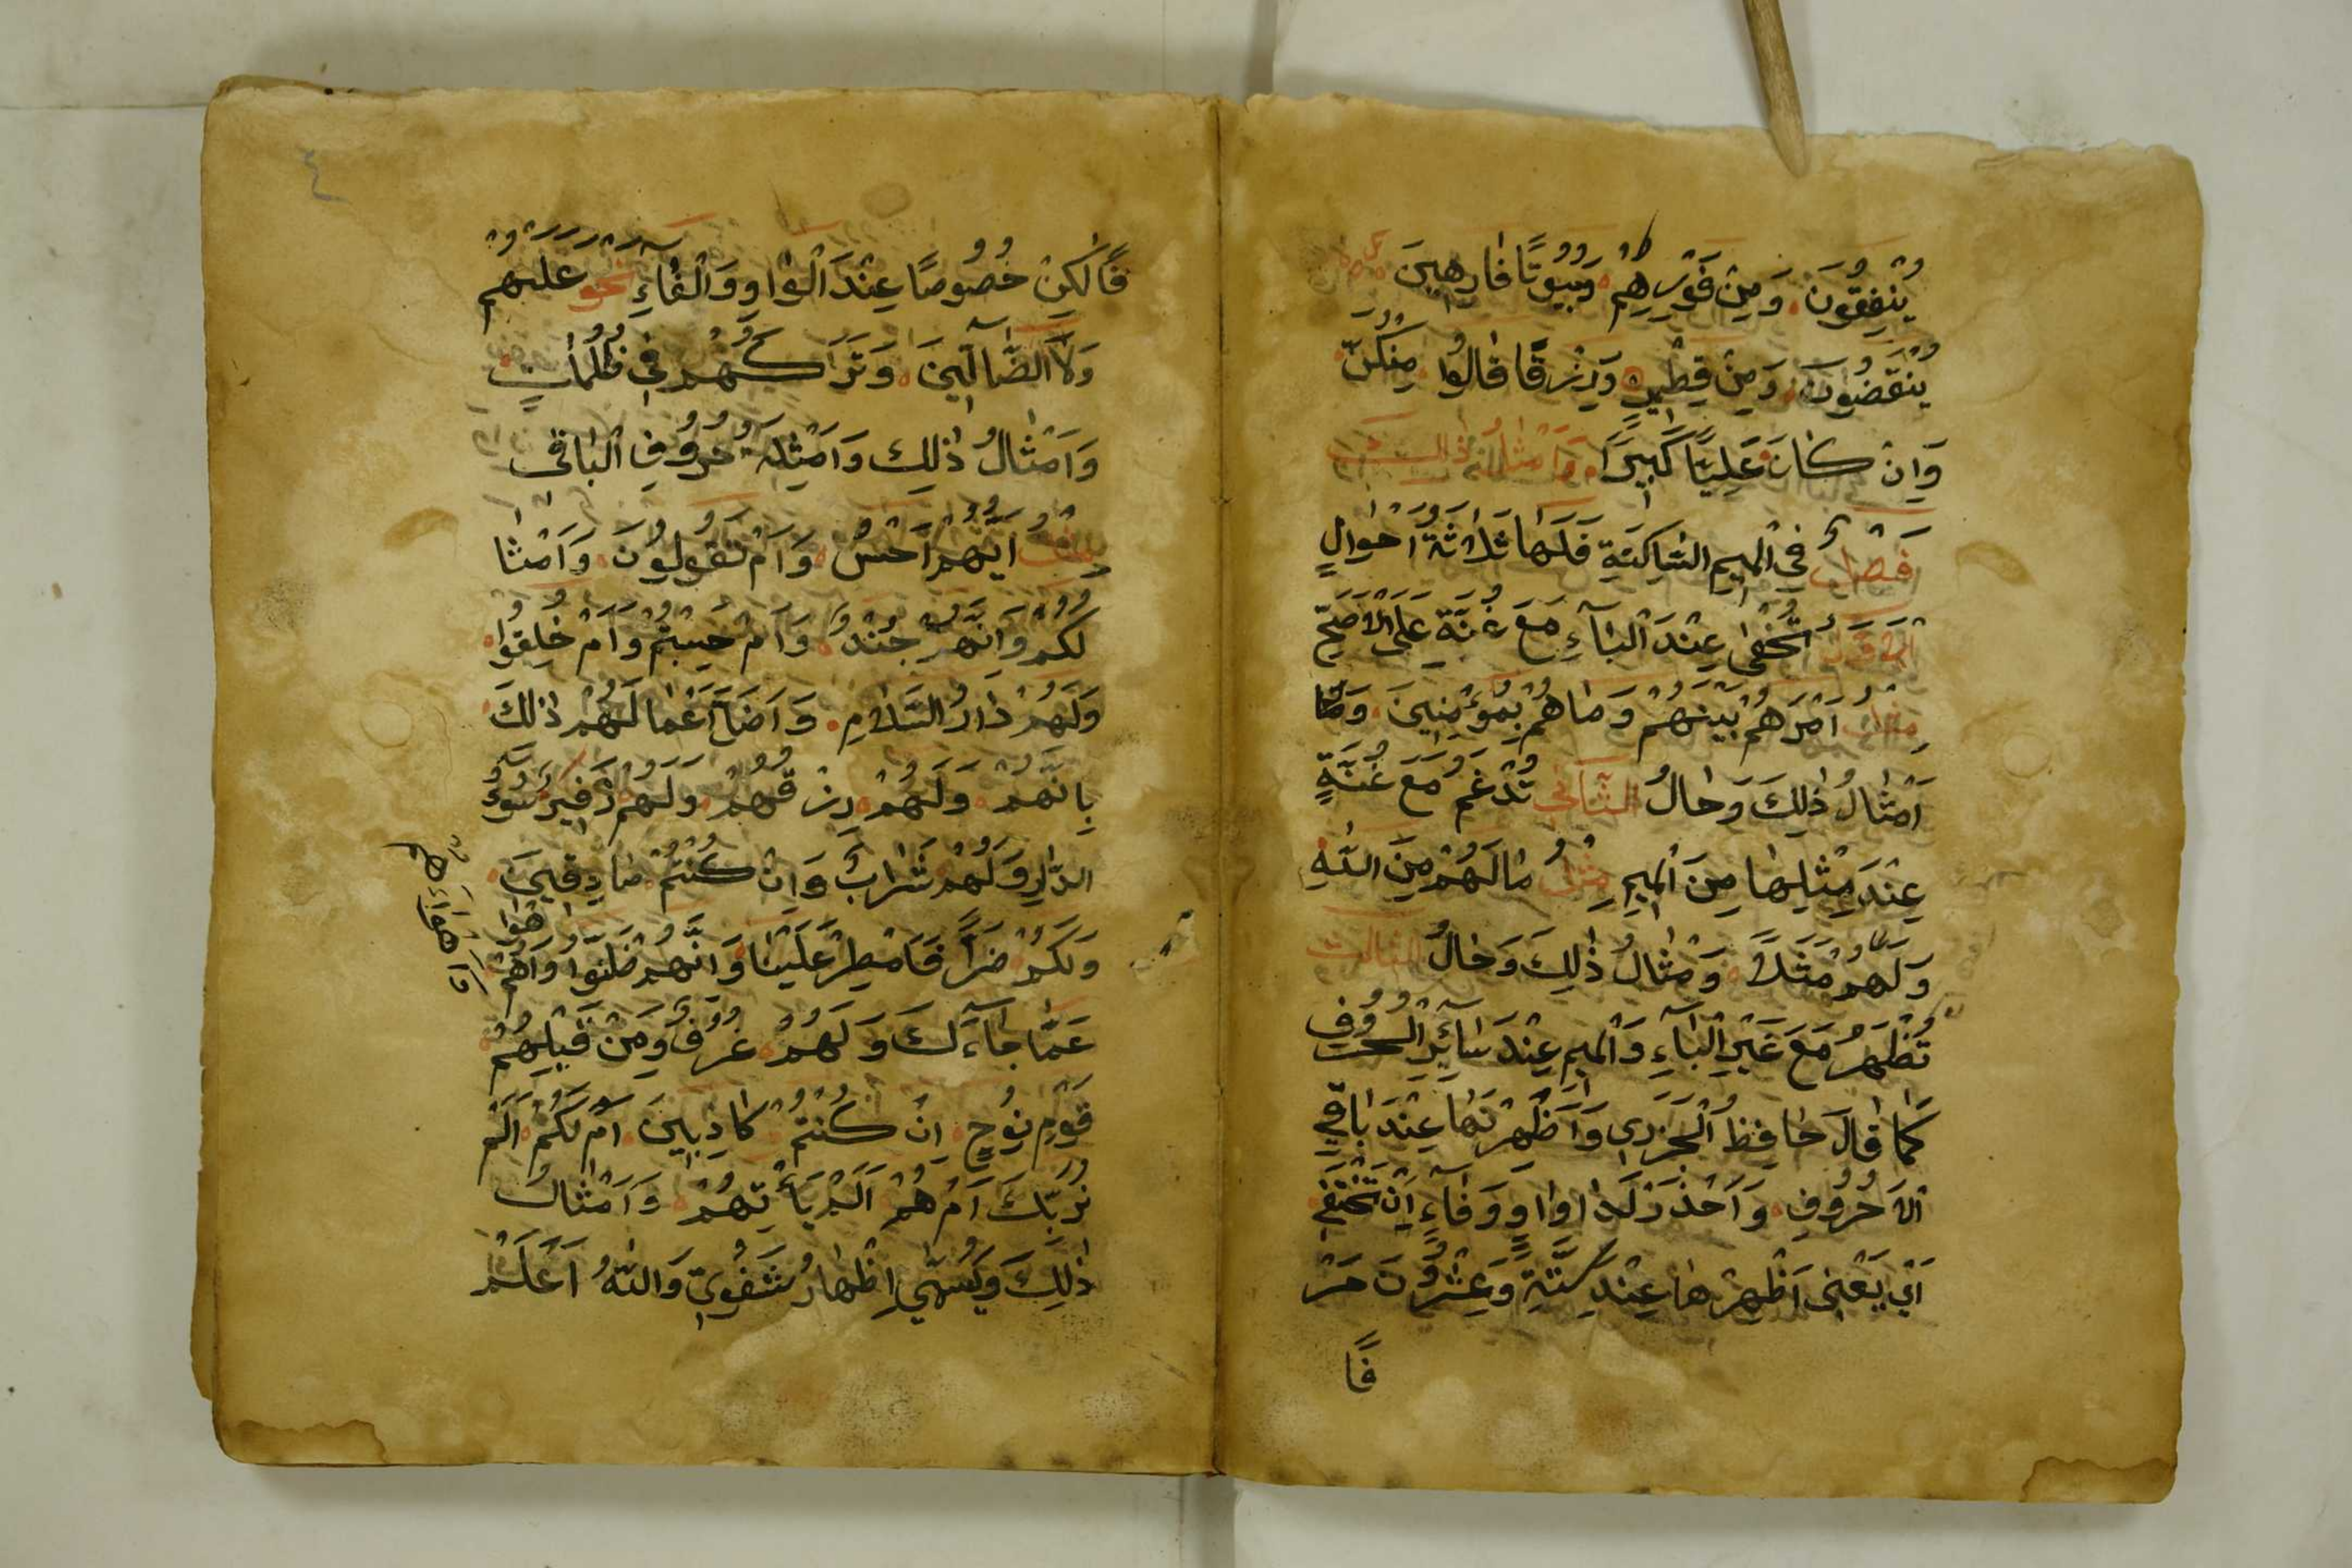 يُنْفِقُونَ وَمِنْ فَوْرِهِمْ وَبُيُوتًا فَارِهِينَ
يَنْقُضُونَ وَمِنْ قِطْمِيرٍ وَرِزْقًا قَالُوا مِنْكُنَّ
وَاِنْ كَانَ عَلِيًّا كَبِيرًا وَاَمْثَالُ ذَالِكَ
فَصْلٌ فِي الْمِيمِ السَّاكِنَةِ فَلَهَا ثَلَاثَةُ اَحْوَالٍ
اَلْاَوَّلُ تُخْفٰى عِنْدَ الْبَآءِ مَعَ غُنَّةٍ عَلَى الْاَصَحِّ
مِثْلُ اَمْرَهُمْ بَيْنَهُمْ وَمَا هُمْ بِمُؤْمِنِينَ وَمَا
اَمْثَالُ ذٰلِكَ وَحَالُ الثَّانِي تُدْغَمُ مَعَ غُنَّةٍ
عِنْدَ مِثْلِهَا مِنَ الْمِيمِ مِثْلُ مَا لَهُمْ مِنَ اللّٰهِ
وَلَهُمْ مَثَلًا وَمْثَالُ ذٰلِكَ وَحَالُ الثَّالِثِ
تُظْهَرُ مَعَ غَيْرِ الْبَآءِ وَالْمِيمِ عِنْدَ سَآئِرِ الْحُرُوفِ
كَمَا قَالَ حَافِظُ الْجَزَرِي وَاَظْهِرَنْهَا عِنْدَ بَاقِي
الْاَحْرُوفِ وَاحْذَرْ لَدَا وَاوٍ وَفَآءٍ اَنْ تَخْتَفِي
اَيْ يَعْنِى اَظْهِرْهَا عِنْدَ سِتَّةٍ وَعِشْرُونَ حَرْ
فًا
٤
فًا لٰكِنْ خُصُوصًا عِنْدَ الْوَاوِ وَالْفَآءِ نَحْوُ عَلَيْهِمْ
وَلَا الضَّآلِّينَ وَتَرَاكَهُمْ فِي ظُلُمَاتٍ
وَاَمْثَالُ ذٰلِكَ وَاَمْثِلَةُ حُرُوفِ الْبَاقِى
مِثْلُ اَيُّهُمْ اَحْسَنُ وَاَمْ تَقُولُونَ وَاَمْثَا
لَكُمْ وَاَنَّهُمْ جُنْدٌ وَاَمْ حَسِبْتُمْ وَاَمْ خُلِقُوا
وَلَهُمْ دَارُ السَّلَامِ وَاَضَلَّ اَعْمَالَهُمْ ذٰلِكَ
بِاَنَّهُمْ وَلَهُمْ رِزْقُهُمْ وَلَهُمْ زَفِيرٌ سُوءُ
الدَّارِ وَلَهُمْ شَرَابٌ وَاِنْ كُنْتُمْ صَادِقِينَ
وَلَكُمْ ضَرًّا فَاَمْطِرْ عَلَيْنَا وَاَنَّهُمْ ظَنُّوا وَاَهْوَاهُمْ
عَمَّا جَآءَكَ وَلَهُمْ غُرَفٌ وَمِنْ قَبْلِهِمْ
قَوْمِ نُوحٍ اِنْ كُنْتُمْ كَاذِبِينَ اَمْ لَكُمْ اَلَمْ
نُرَبِّكَ اَمْ هُمْ اَلَمْ يَأْتِهُمْ وَاَمْثَالُ
ذٰلِكَ وَيُسَمّٰي اِظْهَارُ شَفَوِيٍّ وَاللّٰهُ اَعْلَمْ